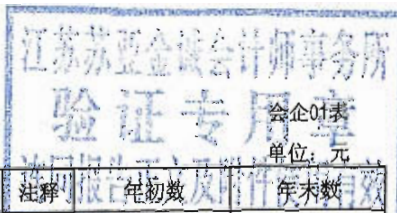 江苏苏亚金诚会计师事务所
验证专用章
会企01表
单位：元
注释 年初数 年末数